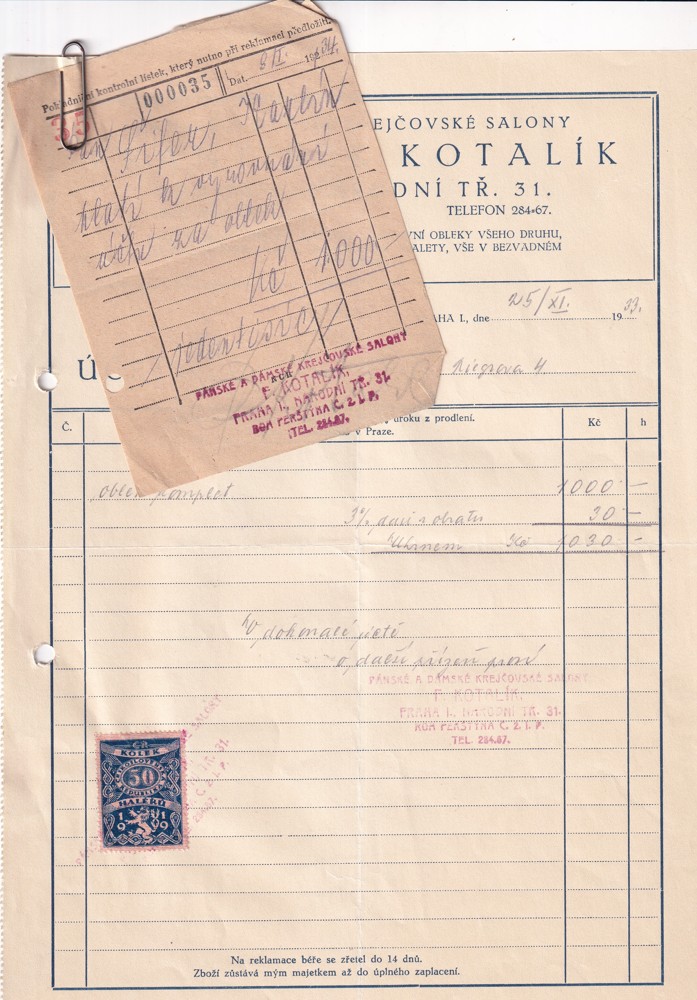 Pokladniční kontrolní lístek, který nutno při reklamaci předložiti.
000035 Dat. 8 II. 1934.
35
Pan
platí k vyrovnání
účtu za oblek
Kč 1.000
jedentisíc
PÁNSKÉ A DÁMSKÉ KREJČOVSKÉ SALONY
F. KOTALÍK,
PRAHA I., NÁRODNÍ TŘ. 31.
DŮM PERŠTÝNA Č. 2 I. P.
TEL. 284-67.
EJČOVSKÉ SALONY
KOTALÍK
DNÍ TŘ. 31.
TELEFON 284-67.
VNÍ OBLEKY VŠEHO DRUHU,
ALETY, VŠE V BEZVADNÉM
AHA I., dne 25/XI. 1933.
Ú
Riegrova 4
úroku z prodlení.
v Praze.
Č. Kč h
oblek komplet 1000 —
3% daň z obratu 30 —
Úhrnem Kč 1030 —
V dokonalé úctě
o další přízeň prosí
PÁNSKÉ A DÁMSKÉ KREJČOVSKÉ SALONY
F. KOTALÍK,
PRAHA I., NÁRODNÍ TŘ. 31.
DŮM PERŠTÝNA Č. 2 I. P.
TEL. 284-67.
KOLEK
ČESKOSLOVENSKÁ
50
REPUBLIKA
HALÉŘŮ
1919
SALONY
TŘ. 31.
Č. 2 I. P.
284-67.
Na reklamace béře se zřetel do 14 dnů.
Zboží zůstává mým majetkem až do úplného zaplacení.